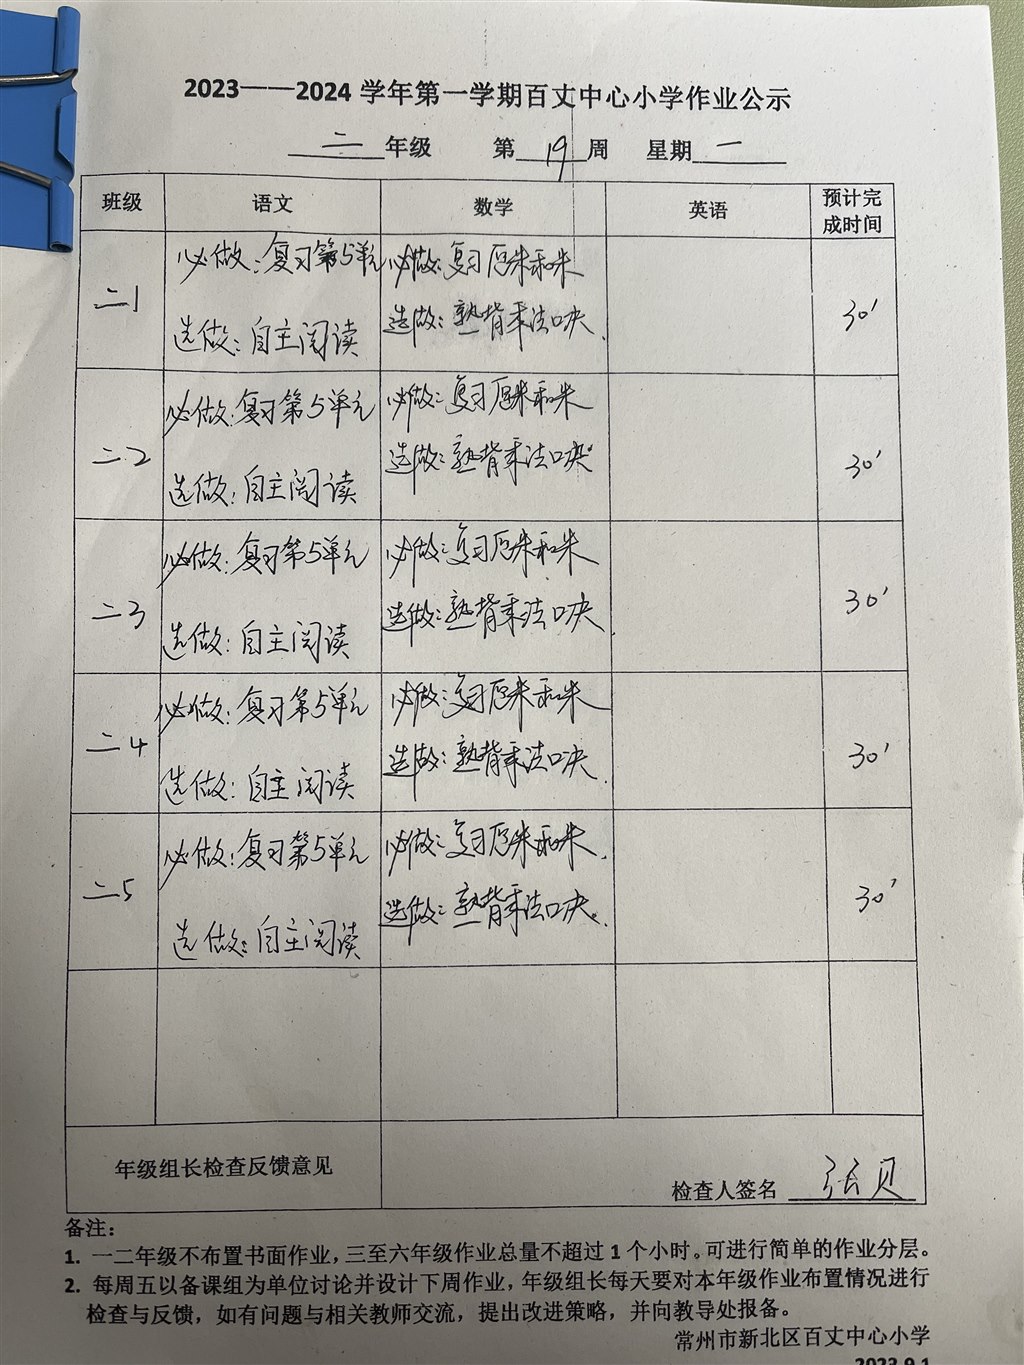 2023——2024 学年第一学期百丈中心小学作业公示
二年级 第19周 星期一
班级 语文 数学 英语 预计完成时间
二1 必做:复习第5单元 必做:复习厘米和米
选做:自主阅读 选做:熟背乘法口决. 30'
二2 必做:复习第5单元 必做:复习厘米和米
选做:自主阅读 选做:熟背乘法口决. 30'
二3 必做:复习第5单元 必做:复习厘米和米
选做:自主阅读 选做:熟背乘法口决. 30'
二4 必做:复习第5单元 必做:复习厘米和米
选做:自主阅读 选做:熟背乘法口决. 30'
二5 必做:复习第5单元 必做:复习厘米和米.
选做:自主阅读 选做:熟背乘法口决. 30'
年级组长检查反馈意见 检查人签名 张贝
备注:
1. 一二年级不布置书面作业,三至六年级作业总量不超过1个小时。可进行简单的作业分层。
2. 每周五以备课组为单位讨论并设计下周作业,年级组长每天要对本年级作业布置情况进行
检查与反馈,如有问题与相关教师交流,提出改进策略,并向教导处报备。
常州市新北区百丈中心小学
2023.9.1